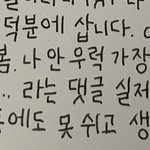 덕분에 삽니다.
봄. 나 안 우럭 가장
... 라는 댓글 실제
에도 못 쉬고 생